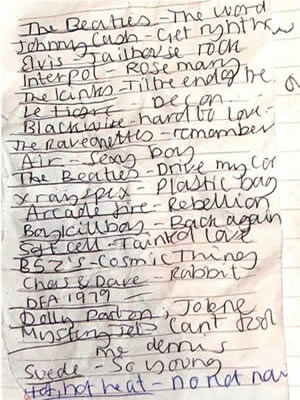 The Beatles - The word
Johnny Cash - Get rhythm
Elvis - Jailhouse rock
Interpol - Rosemary
The Kinks - Till the end of the
Le Tigre - Decon
Blackwire - hard to love -
The Raveonettes - remember
Air - Sexy boy
The Beatles - Drive my car
x ray spex - Plastic bag
Arcade fire - Rebellion
Babyshambles - Back again
Soft cell - Tainted love
B52's - Cosmic Thing
Chas & Dave - Rabbit
DFA 1979 -
Dolly Parton; Jolene
Mystery Jets Can't
me dennis
Suede - So young
Hot hot heat - no not now